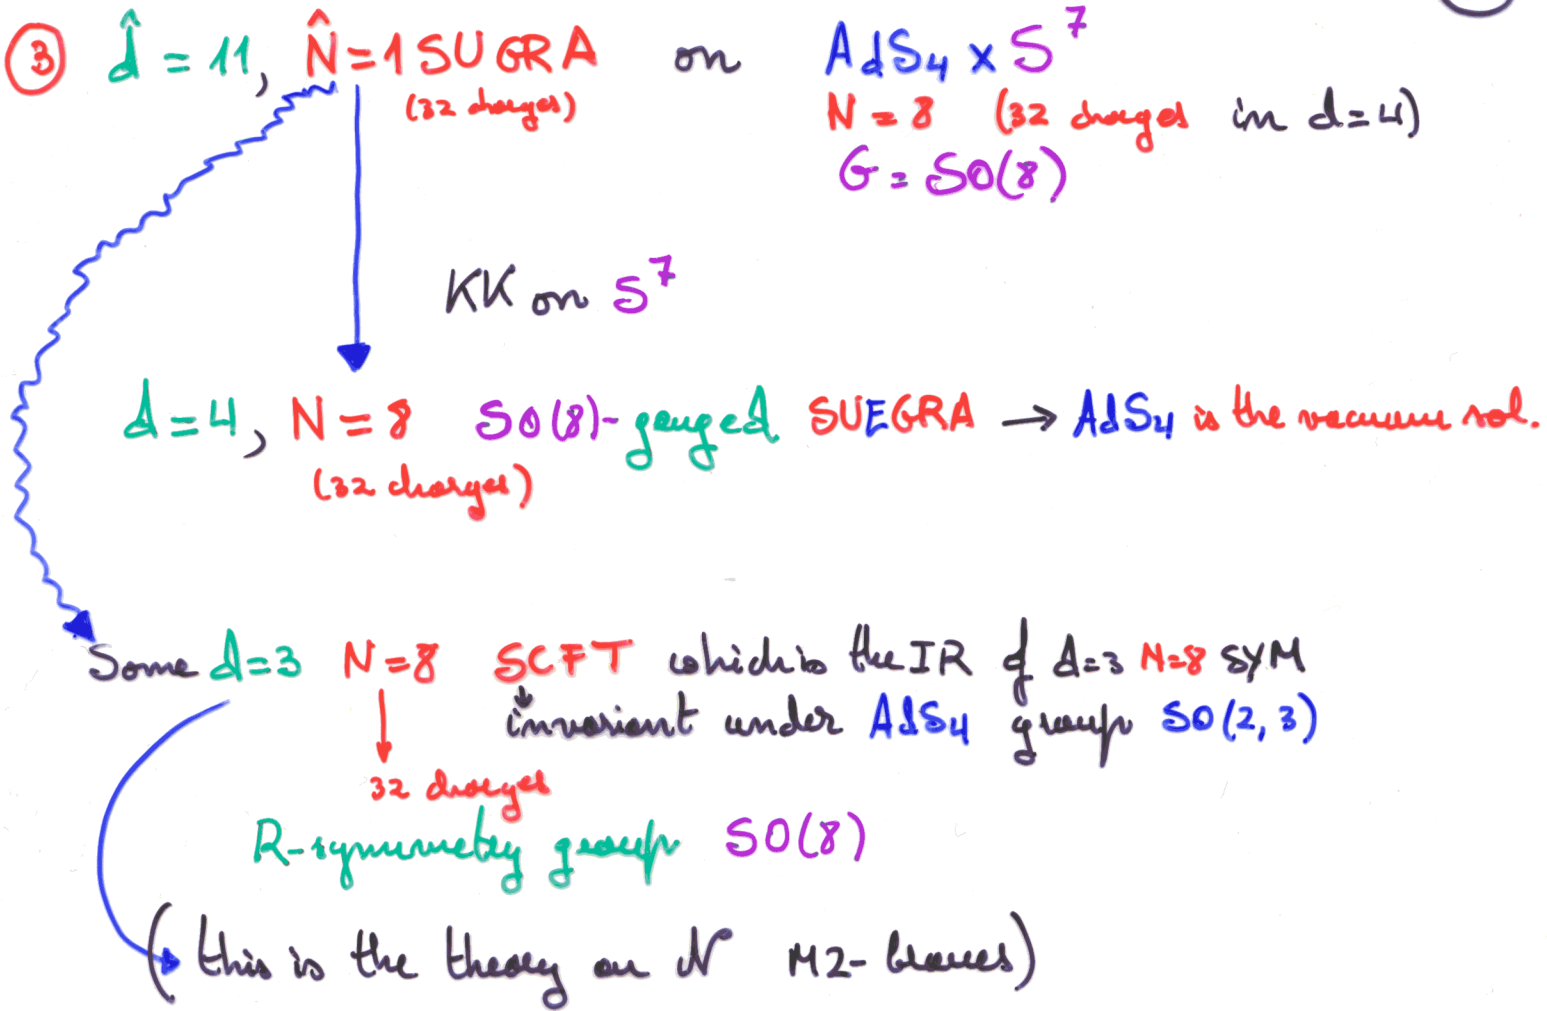 ③ d̂ = 11, N̂ = 1 SUGRA on AdS₄ × S⁷
(32 charges) N = 8 (32 charges in d=4)
G = SO(8)
KK on S⁷
d = 4, N = 8 SO(8)-gauged SUEGRA → AdS₄ is the vacuum sol.
(32 charges)
Some d=3 N=8 SCFT which is the IR of d=3 N=8 SYM
invariant under AdS₄ group SO(2,3)
32 charges
R-symmetry group SO(8)
(this is the theory on N M2-branes)